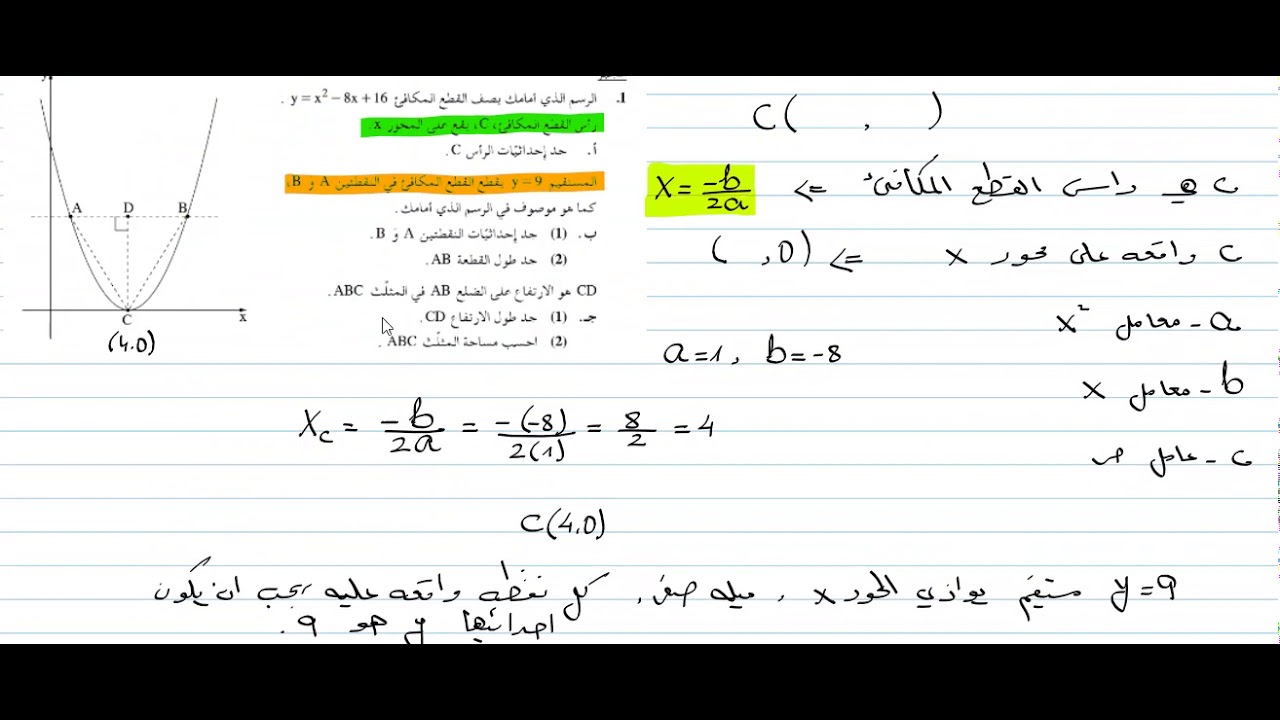 1. الرسم الذي أمامك يصف القطع المكافئ y = x² – 8x + 16 .
رأس القطع المكافئ، C، يقع على المحور x.
أ. جد إحداثيّات الرأس C.
المستقيم y = 9 يقطع القطع المكافئ في النقطتين A و B،
كما هو موصوف في الرسم الذي أمامك.
ب. (1) جد إحداثيّات النقطتين A وَ B.
(2) جد طول القطعة AB.
CD هو الارتفاع على الضلع AB في المثلّث ABC.
جـ. (1) جد طول الارتفاع CD.
(2) احسب مساحة المثلّث ABC.
y
A D B
C x
(4.0)
C( , )
C هو راس القطع المكافئ => X = -b/2a
C واقعه على محور x => ( , 0)
a - معامل x²
a=1, b=-8
b - معامل x
C - عامل حر
Xc = -b/2a = -(-8)/2(1) = 8/2 = 4
C(4.0)
y=9 مستقيم يوازي المحور x , ميله صفر , كل نقطه واقعه عليه يجب ان يكون
احداثيها y هو 9.